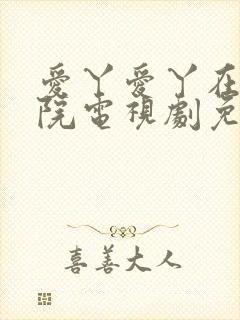 愛丫愛丫在
院電視劇免
喜善大人